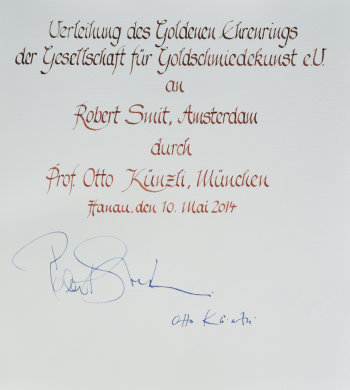 Verleihung des Goldenen Ehrenrings
der Gesellschaft für Goldschmiedekunst e.V.
an
Robert Smit, Amsterdam
durch
Prof. Otto Künzli, München
Hanau, den 10. Mai 2014
Robert Smit
Otto Künzli